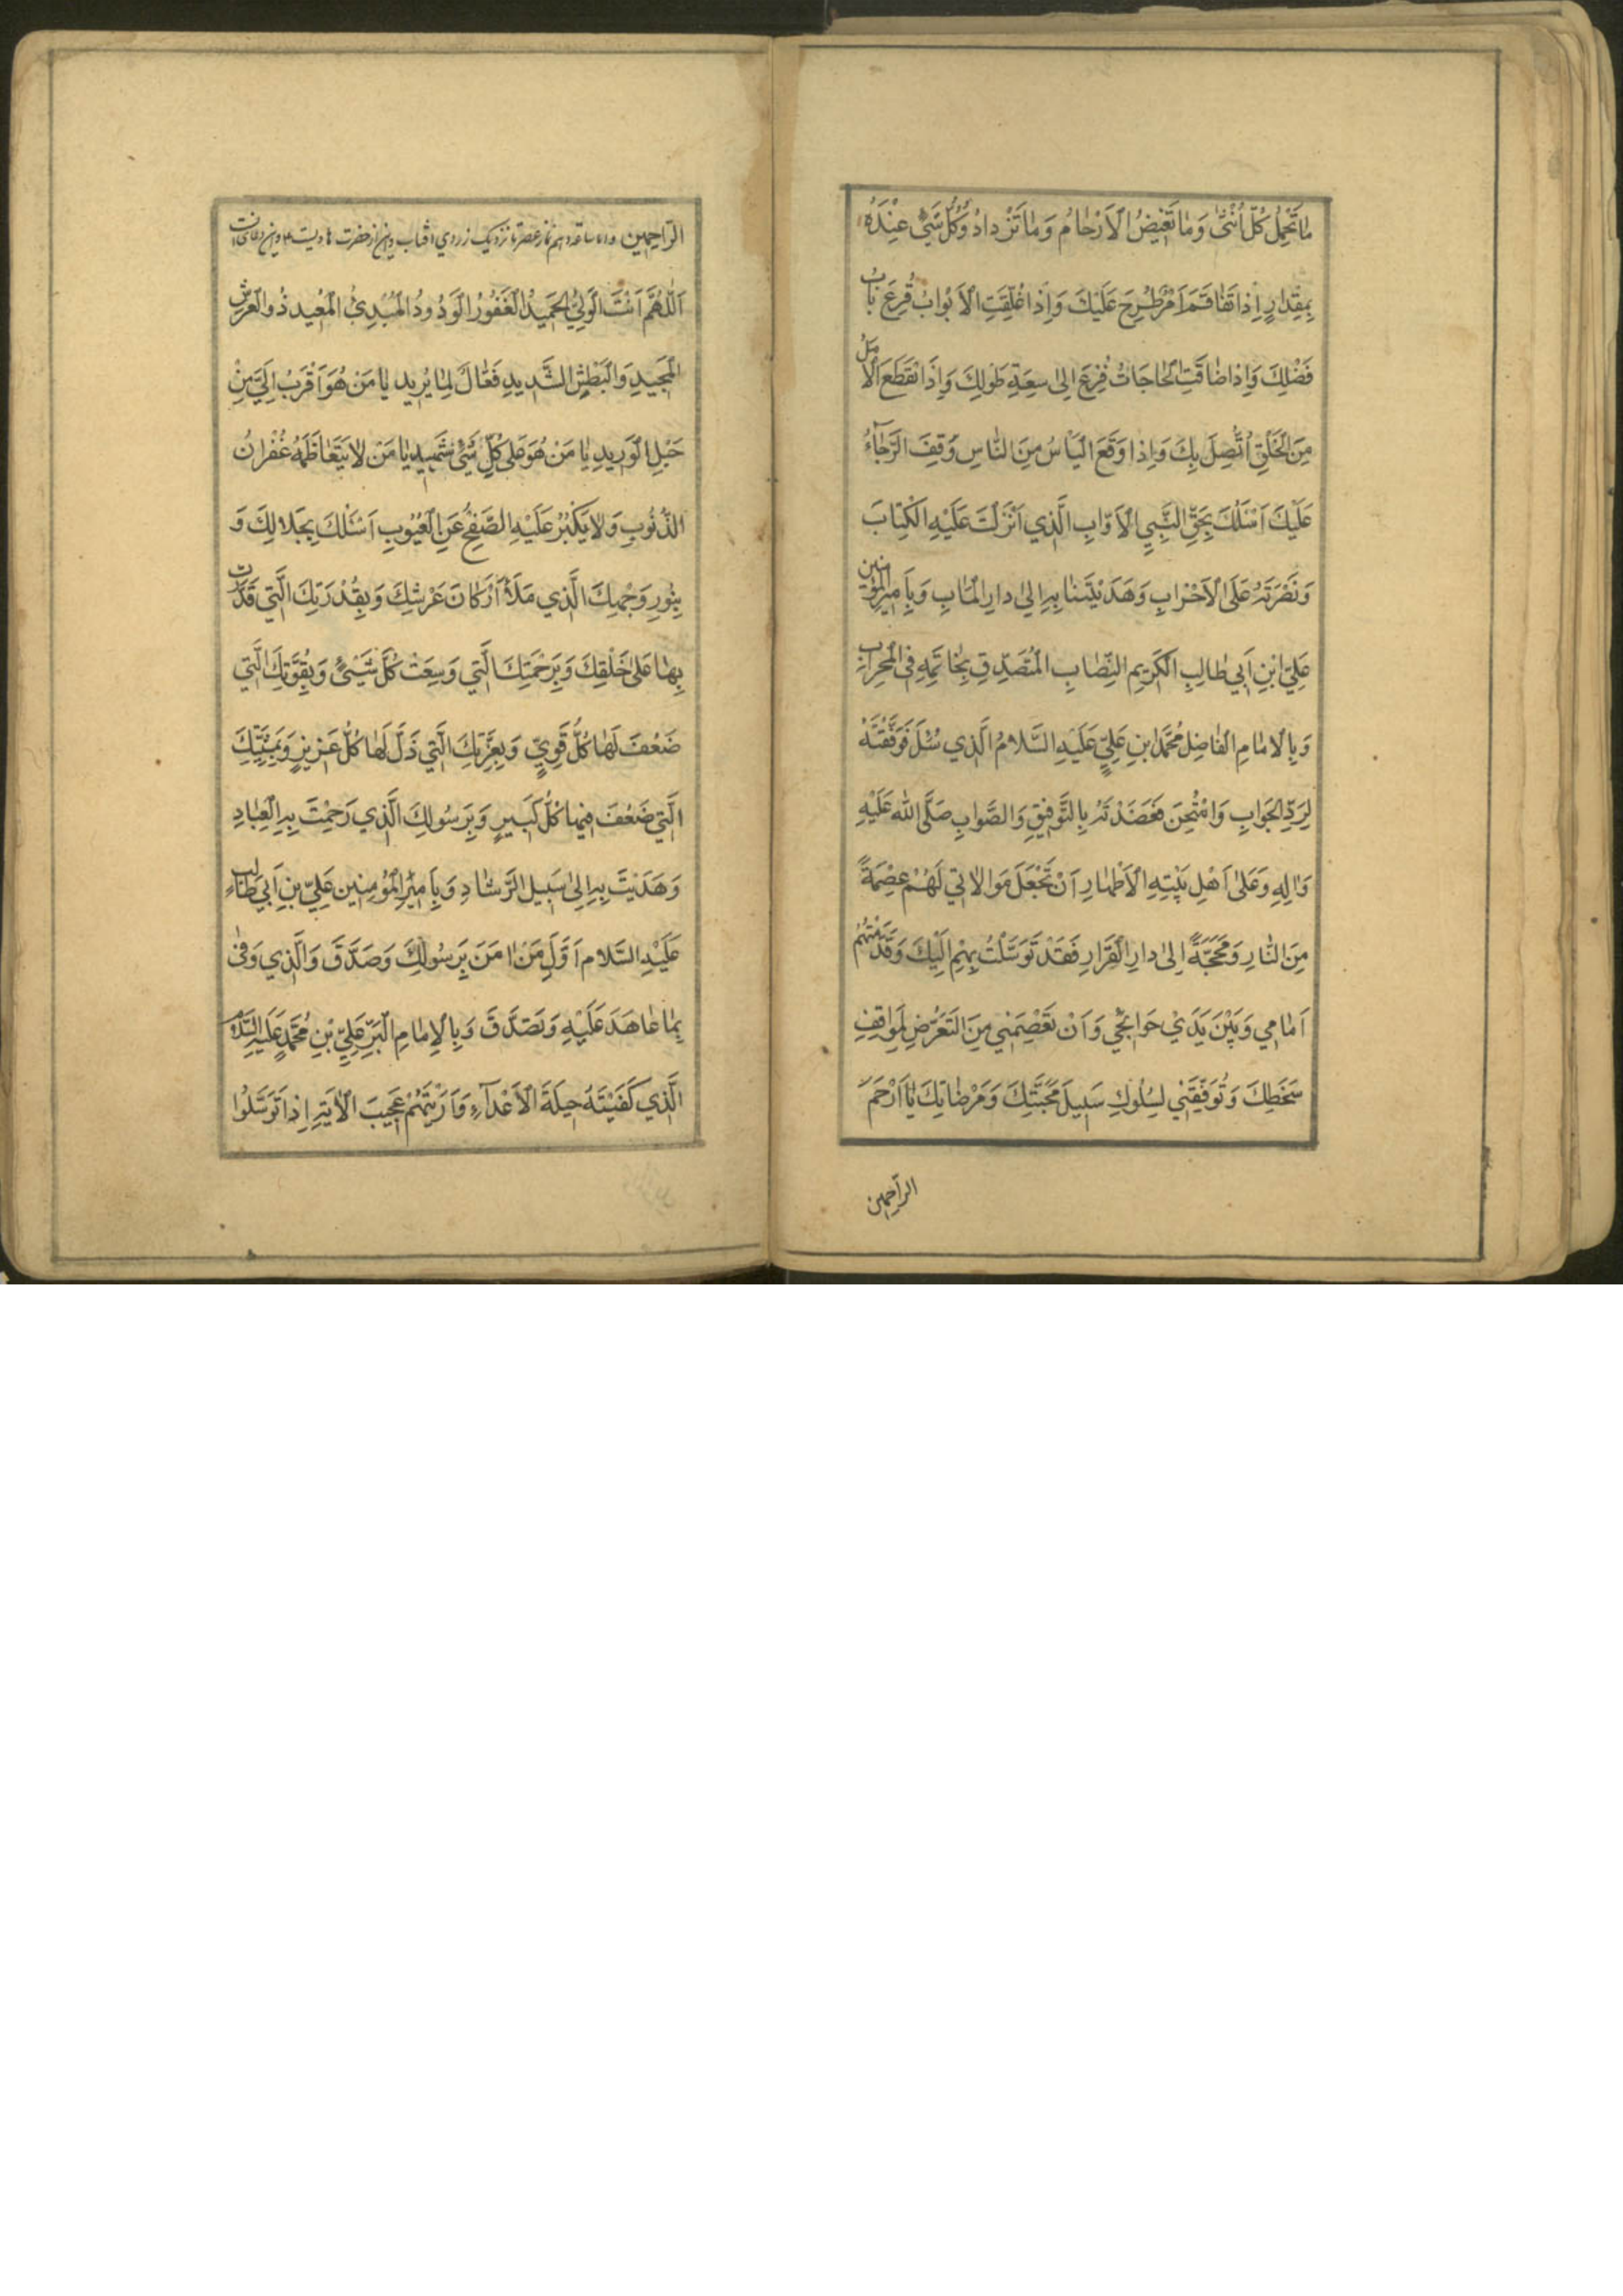 مَا تَحْمِلُ كُلُّ اُنْثىٰ وَمٰا تَغيضُ الْاَرْحٰامُ وَمٰا تَزْدادُ وَكُلُّ شَيْءٍ عِنْدَهُ
بِمِقْدٰارٍ اِذٰا تَفٰاقَمَ اَمْرٌ طُرِحَ عَلَيْكَ وَاِذٰا غُلِّقَتِ الْاَبْوٰابُ قُرِعَ بٰابُ
فَضْلِكَ وَاِذٰا ضٰاقَتِ الْحٰاجٰاتُ فُزِعَ اِلىٰ سِعَةِ طَوْلِكَ وَاِذَا انْقَطَعَ الْاَمَلُ
مِنَ الْخَلْقِ اتَّصَلَ بِكَ وَاِذٰا وَقَعَ الْيَاْسُ مِنَ النّٰاسِ وُقِفَ الرَّجٰٓاءُ
عَلَيْكَ اَسْئَلُكَ بِحَقِّ النَّبِيِّ الْاَوّٰابِ الَّذي اَنْزَلْتَ عَلَيْهِ الْكِتٰابَ
وَنَصَرْتَهُ عَلَى الْاَحْزٰابِ وَهَدَيْتَنٰا بِهِ اِلىٰ دارِ الْمَاٰبِ وَبِاَميرِالْمُؤْمِنينَ
عَلِيِّ ابْنِ اَبي طٰالِبِ الْكَريمِ النِّصٰابِ الْمُتَصَدِّقِ بِخٰاتَمِهِ فِى الْمِحْرٰابِ
وَبِالْاِمٰامِ الْفٰاضِلِ مُحَمَّدِ ابْنِ عَلِيٍّ عَلَيْهِ السَّلامُ الَّذي سُئِلَ فَوَفَّقْتَهُ
لِرَدِّ الْجَوابِ وَامْتُحِنَ فَعَضَدْتَهُ بِالتَّوْفيقِ وَالصَّوابِ صَلَّى اللّٰه عَلَيْهِ
وَاٰلِهِ وَعَلىٰ اَهْلِ بَيْتِهِ الْاَطْهٰارِ اَنْ تَجْعَلَ مَوٰالاٰتي لَهُمْ عِصْمَةً
مِنَ النّٰارِ وَمَحَجَّةً اِلىٰ دارِ الْقَرارِ فَقَدْ تَوَسَّلْتُ بِهِمْ اِلَيْكَ وَقَدَّمْتُهُمْ
اَمٰامي وَبَيْنَ يَدَيْ حَوٰائِجي وَاَنْ تَعْصِمَني مِنَ التَّعَرُّضِ لِمَوٰاقِفِ
سَخَطِكَ وَتُوَفِّقَني لِسُلُوكِ سَبيلِ مَحَبَّتِكَ وَمَرْضٰاتِكَ يٰا اَرْحَمَ
الراحمين
الرّاحِمينَ نماز عصر تا نزدیک زردی آفتاب
اَللّٰهُمَّ اَنْتَ الْوَلِيُّ الْحَميدُ الْغَفُورُ الْوَدُودُ الْمُبْدِئُ الْمُعيد ذُوالْعَرْشِ
الْمَجيدِ وَالْبَطْشِ الشَّديدِ فَعّٰالٌ لِمٰا يُريد يا مَن هُوَ اَقْرَبُ اِلَيَّ مِنْ
حَبْلِ الْوَريدِ يٰا مَنْ هُوَ عَلىٰ كُلِّ شَيْءٍ شَهيد يٰا مَن لا يَتَعٰاظَمُهُ غُفْرانُ
الذُّنُوبِ وَلا يَكْبُرُ عَلَيْهِ الصَّفْحُ عَنِ الْعُيُوبِ اَسْئَلُكَ بِجَلالِكَ وَ
بِنُورِ وَجْهِكَ الَّذي مَلَأَ اَرْكٰانَ عَرْشِكَ وَبِقُدْرَتِكَ الَّتي قَدَرْتَ
بِهٰا عَلىٰ خَلْقِكَ وَبِرَحْمَتِكَ الَّتي وَسِعَتْ كُلَّ شَيْئٍ وَبِقُوَّتِكَ الَّتي
ضَعُفَ لَهٰا كُلُّ قَوِيٍّ وَبِعِزَّتِكَ الَّتي ذَلَّ لَهٰا كُلُّ عَزيزٍ وَبِمَشِيَّتِكَ
الَّتي ضَعُفَ فيهٰا كُلُّ كَبيرٍ وَبِرَسُولِكَ الَّذي رَحِمْتَ بِهِ الْعِبٰادَ
وَهَدَيْتَ بِهِ اِلىٰ سَبيلِ الرَّشٰادِ وَبِاَميرِالْمُؤْمِنينَ عَلِيِّ بْنِ اَبي طٰالِبٍ
عَلَيْهِ السَّلام اَوَّلِ مَنْ اٰمَنَ بِرَسُولِكَ وَصَدَّقَ وَالَّذي وَفىٰ
بِمٰا عٰاهَدَ عَلَيْهِ وَتَصَدَّقَ وَبِالْاِمٰامِ الْبَرِّ عَلِيِّ بْنِ مُحَمَّدٍ عَلَيْهِ السَّلام
الَّذي كَفَيْتَهُ حيلَةَ الْاَعْدآءِ وَاَرَيْتَهُمْ عَجيبَ الْاٰيَةِ اِذْ تَوَسَّلُوا